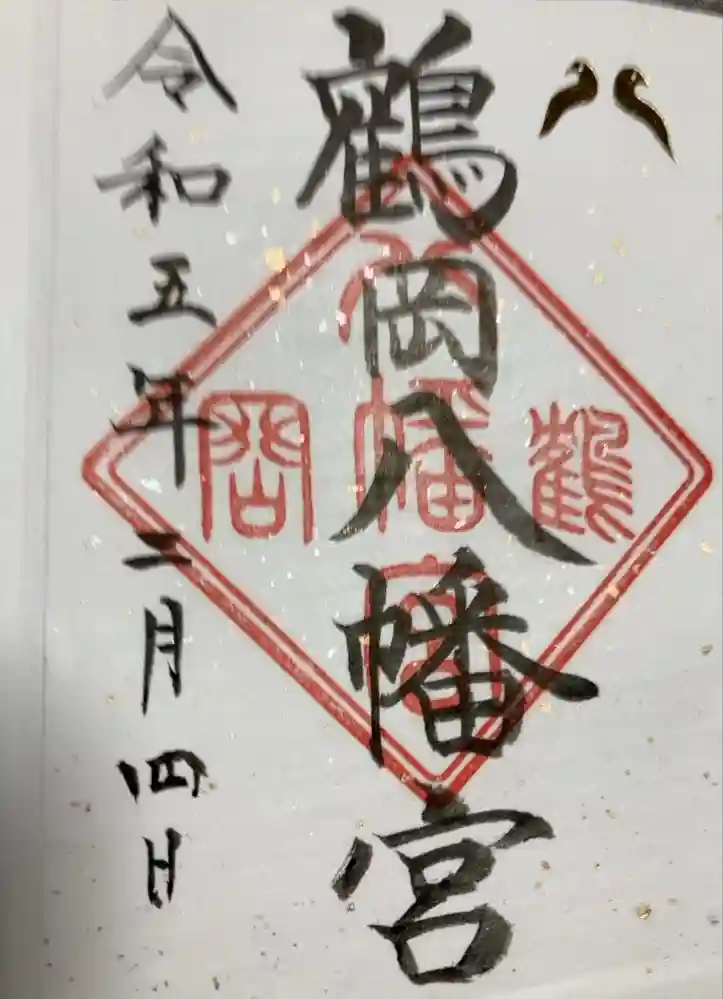 八
鶴岡八幡宮
鶴
八幡宮
岡
令和五年二月四日